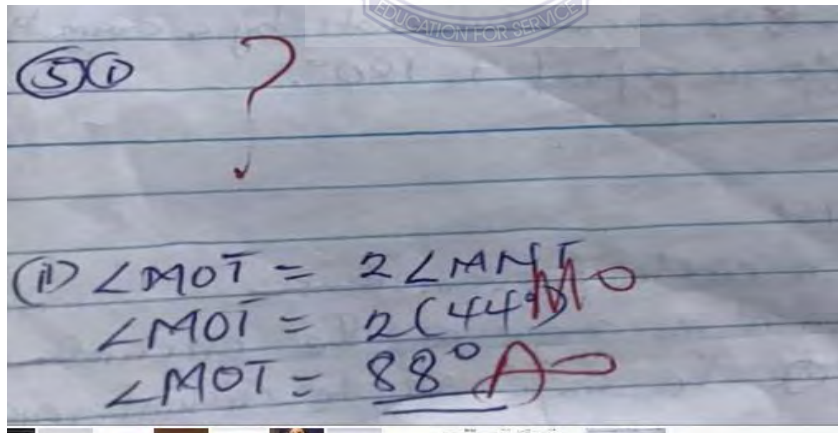 EDUCATION FOR SERVICE
5 i
?
ii ∠MOT = 2∠MNT M0
∠MOT = 2(44°)
∠MOT = 88° A0